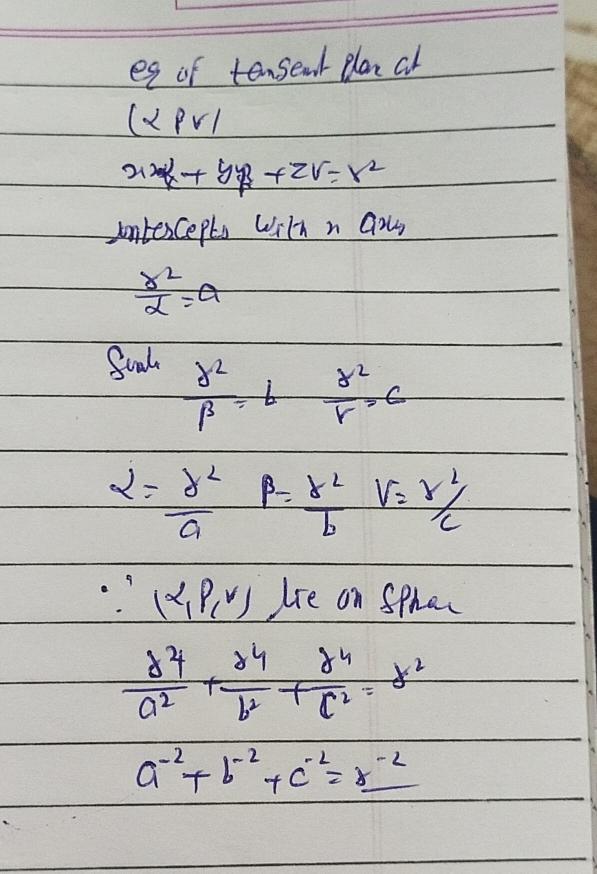 eq of tangent plan at
(α β γ)
xα + yβ + zγ = r²
intercepts with x axis
r²/α = a
r²/β = b r²/γ = c
α = r²/a β = r²/b γ = r²/c
∵ (α, β, γ) lie on sphere
r⁴/a² + r⁴/b² + r⁴/c² = r²
a⁻² + b⁻² + c⁻² = r⁻²